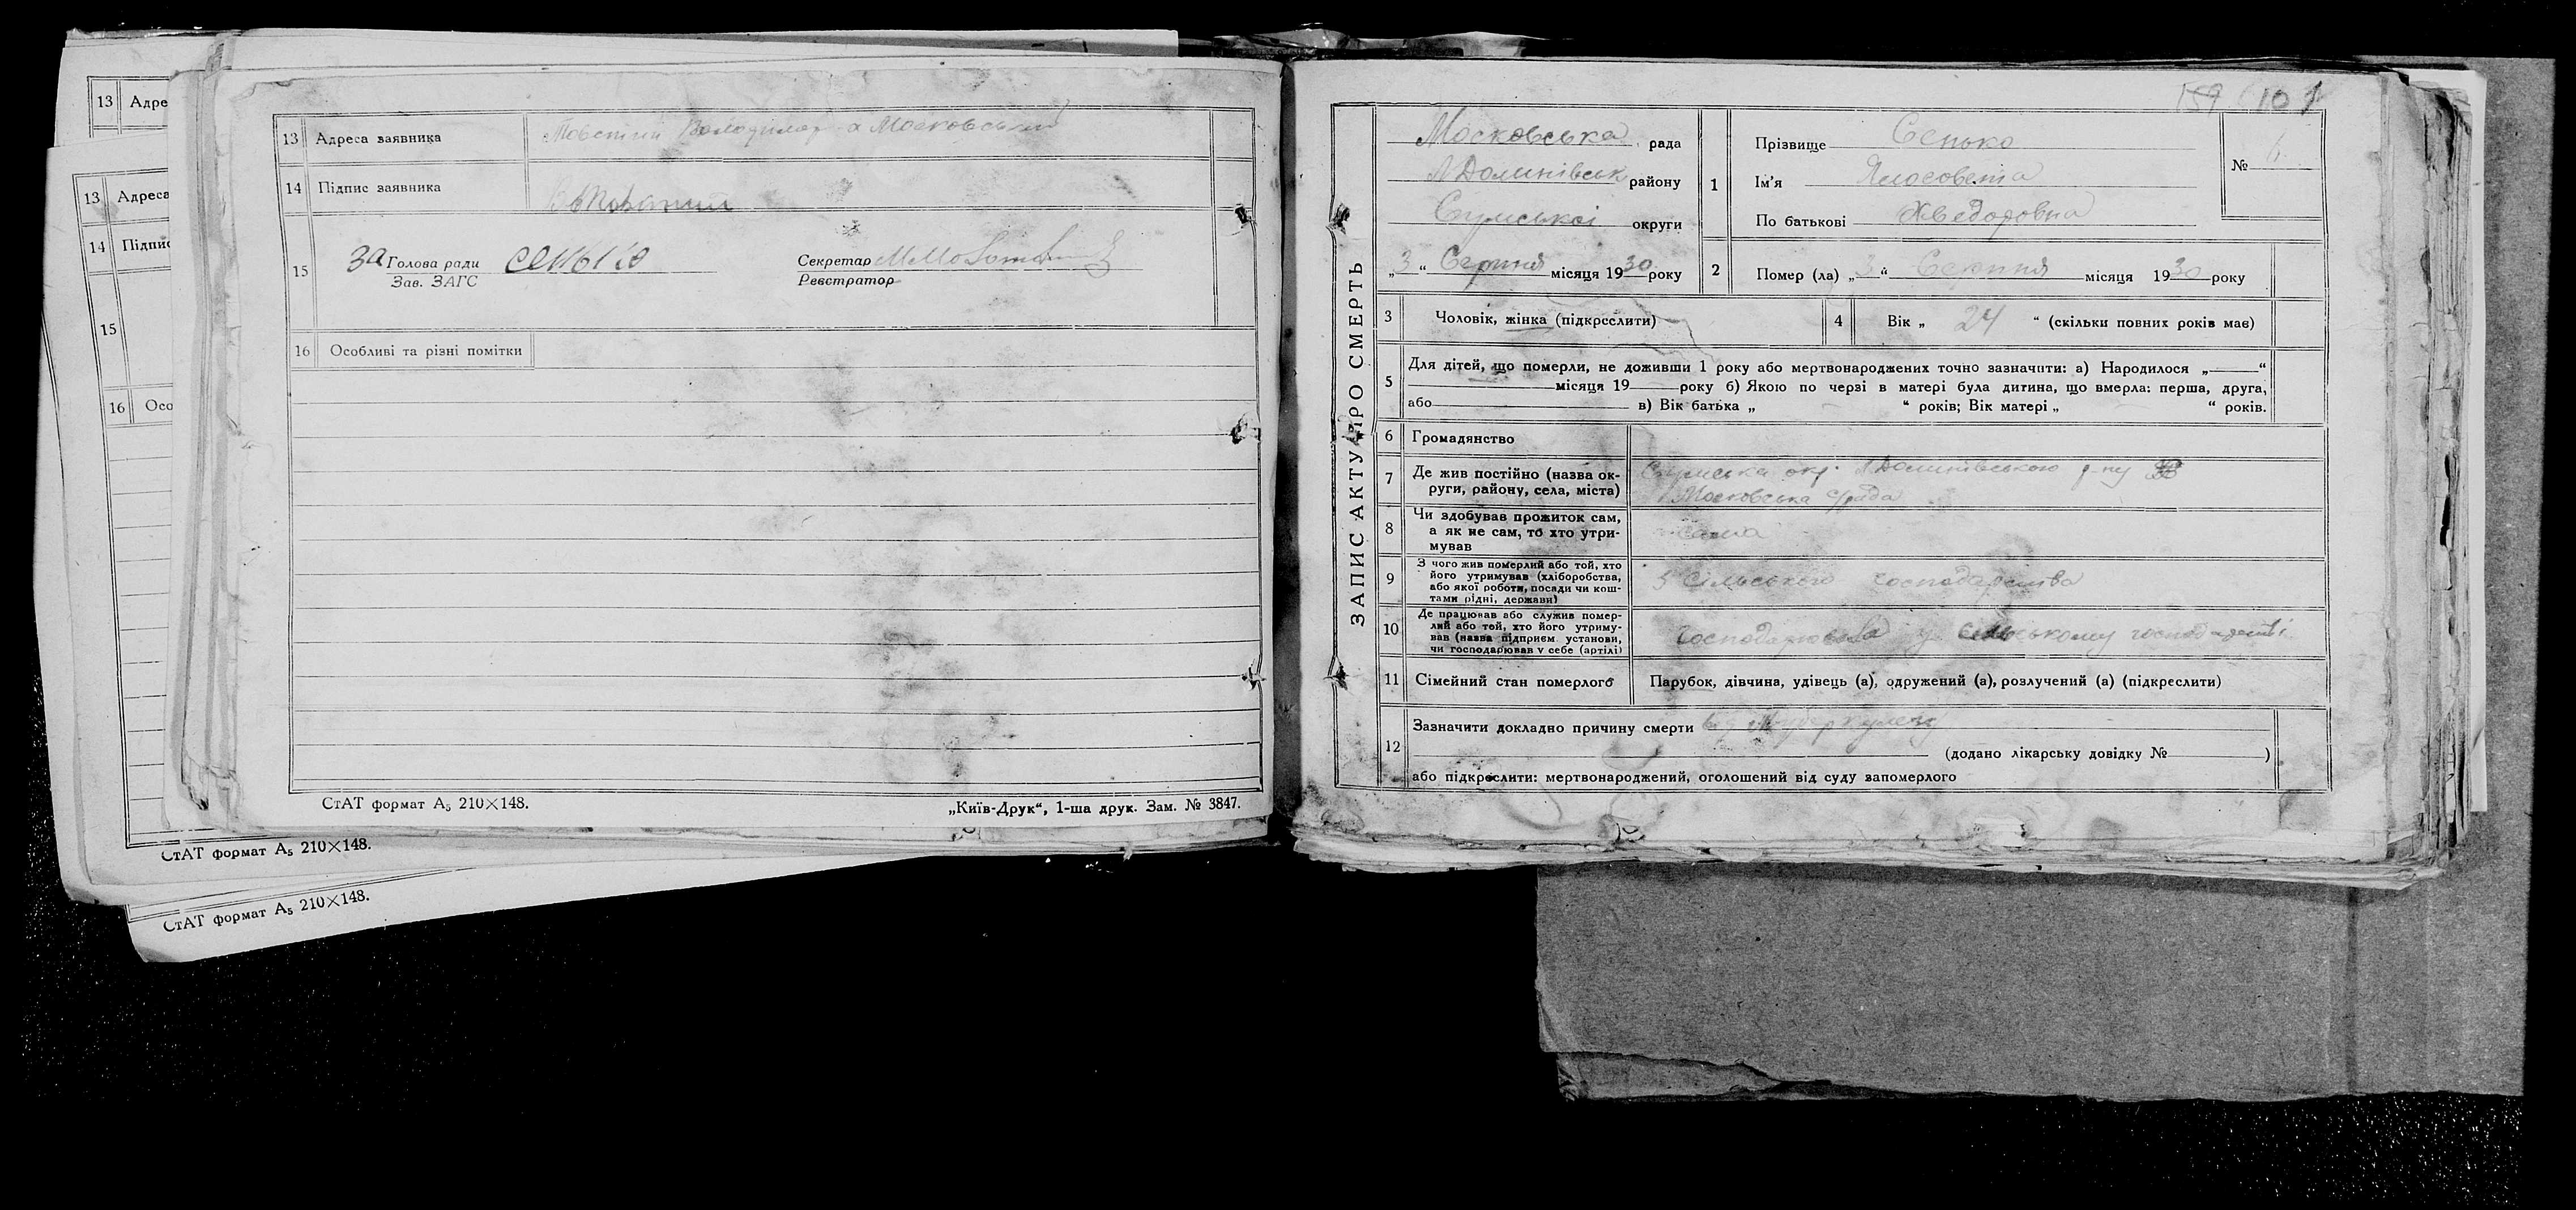 13 Адре
13 Адреса
14 Підпис
15
16 Осо
СтАТ формат А₅ 210×148.
СтАТ формат А₅ 210×148.
13 Адреса заявника Товстий Володимар Московський
14 Підпис заявника
15 За Голова ради Сенько Секретар
Зав. ЗАГС Реєстратор
16 Особливі та різні помітки
СтАТ формат А₅ 210×148. „Київ-Друк“, 1-ша друк. Зам. № 3847.
159 101
ЗАПИС АКТУ ПРО СМЕРТЬ
Московська рада
Сумської округи
району
„3“ Серпня місяця 1930 року
1 Прізвище Сенько
Ім’я
По батькові Хведоровна
№ 6
2 Помер (ла) „3“ Серпня місяця 1930 року
3 Чоловік, жінка (підкреслити)
4 Вік „ 24 “ (скільки повних років має)
5 Для дітей, що померли, не доживши 1 року або мертвонароджених точно зазначити: а) Народилося „ “
місяця 19 року б) Якою по черзі в матері була дитина, що вмерла: перша, друга,
або в) Вік батька „ “ років; Вік матері „ “ років.
6 Громадянство
7 Де жив постійно (назва ок-
руги, району, села, міста)
Сумська окр. р-ну
Московська с/рада
8 Чи здобував прожиток сам,
а як не сам, то хто утри-
мував
сама
9 З чого жив померлий або той, хто
його утримував (хліборобства,
або якої роботи, посади чи кош-
тами рідні, держави)
з сільського господарства
10 Де працював або служив помер-
лий або той, хто його утриму-
вав (назва підприєм. установи,
чи господарював у себе (артілі)
Господарювала у сільському господарстві
11 Сімейний стан померлого Парубок, дівчина, удівець (а), одружений (а), розлучений (а) (підкреслити)
12 Зазначити докладно причину смерти від туберкулезу
(додано лікарську довідку № )
або підкреслити: мертвонароджений, оголошений від суду запомерлого